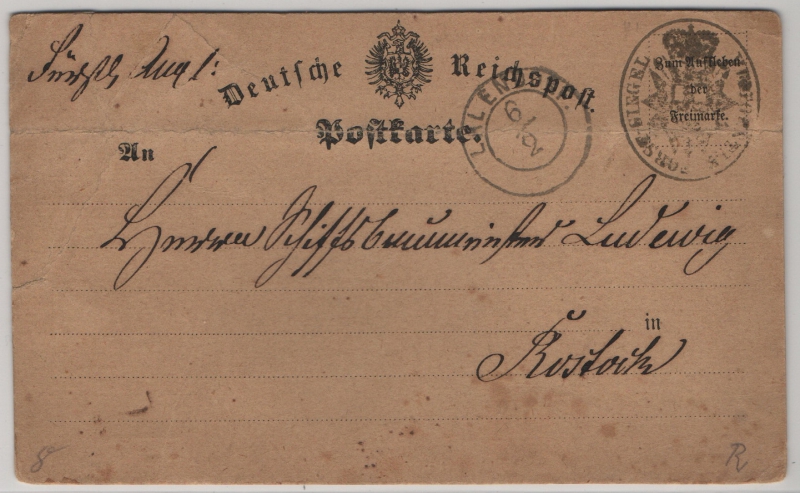 Fürstl. Ang.:
Deutsche Reichspost.
Postkarte.
Zum Aufkleben
der
Freimarke.
SIEGEL
An
Herrn Schiffsbaumeister Ludewig
in
Rostock
8
R